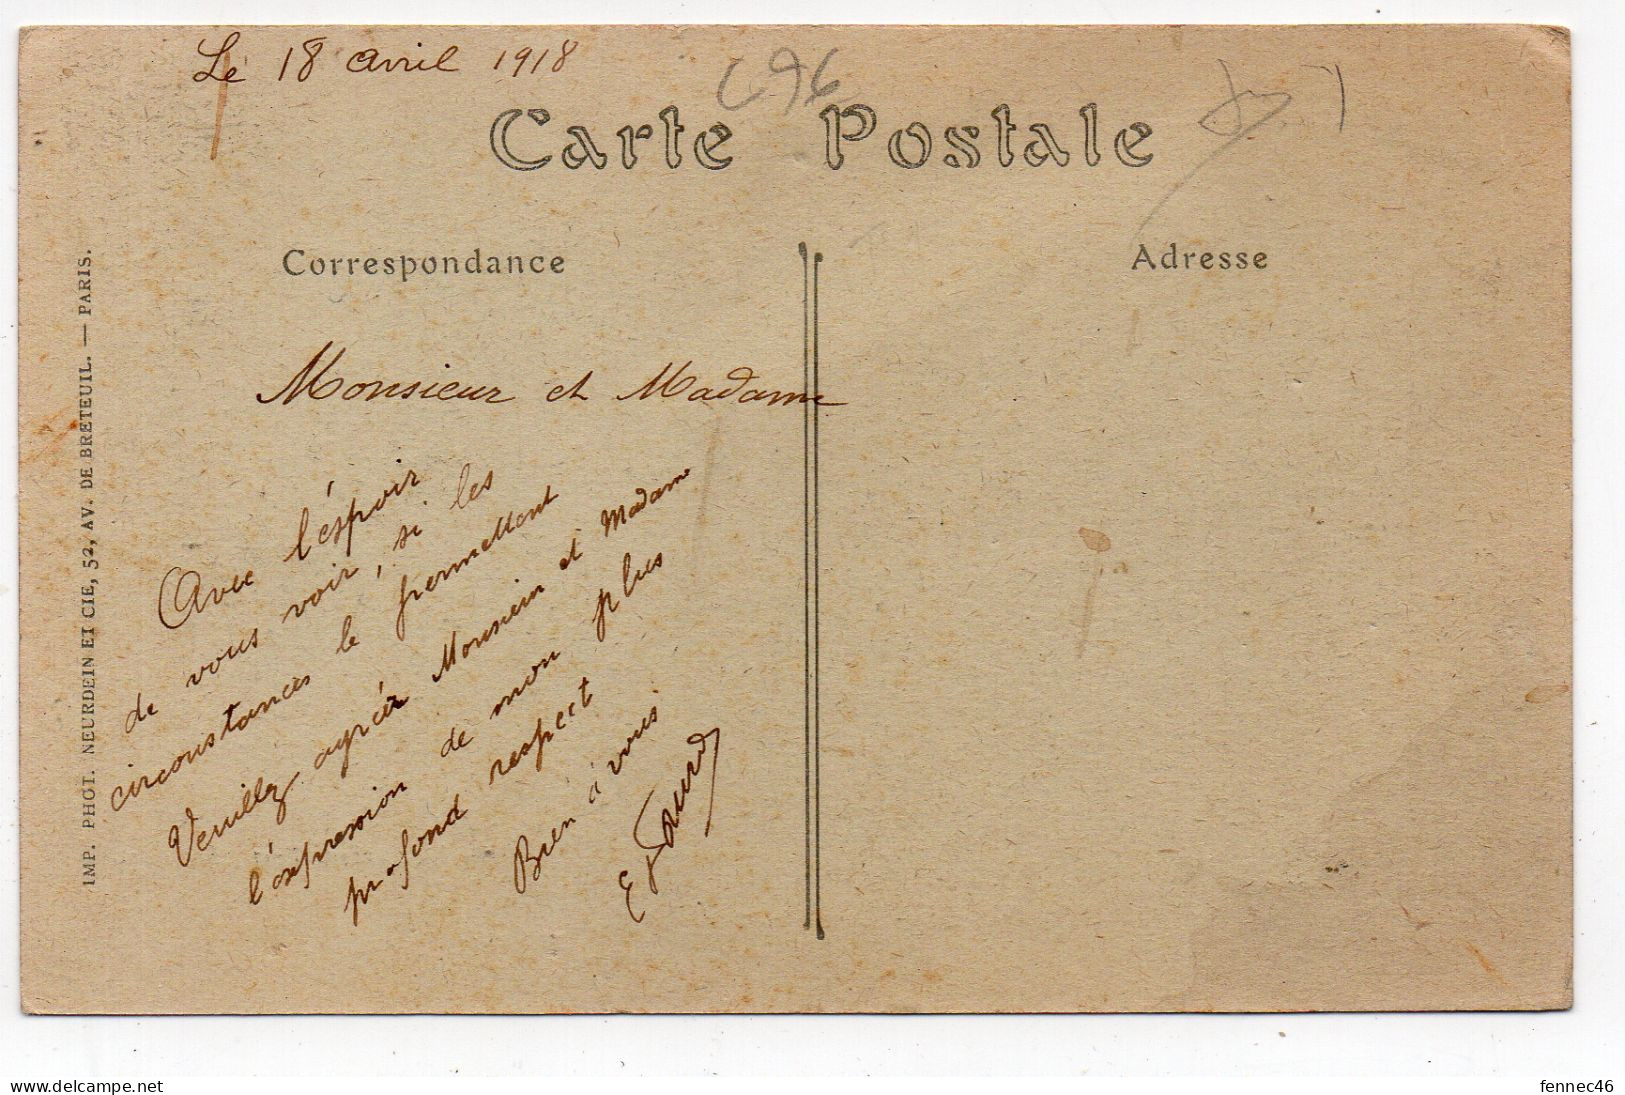 Le 18 avril 1918
696
Carte Postale
Correspondance
Adresse
Monsieur et Madame
Avec l'éspoir
de vous voir, si les
circonstances le permettent
Veuillez agréer Monsieur et Madame
l'éxpression de mon plus
profond respect
Bien à vous
IMP. PHOT. NEURDEIN ET CIE, 52, AV. DE BRETEUIL. — PARIS.
delcampe.net
fennec46